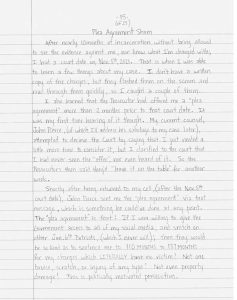 -15-
(of 27)
Plea Agreement Sham
After nearly 10 months of incarceration without being allowed
to see the evidence against me, nor know what I'm charged with,
I had a court date on Nov 5th, 2021. That is when I was able
to learn a few things about my case. I don't have a written
copy of the charges, but they flashed them on the screen and
read through them quickly, so I caught a couple of things.
I also learned that the Prosecutor had offered me a "plea
agreement" more than 2 months prior to that court date. It
was my first time hearing of it though. My current counsel,
John Pierce, (of which I'll address his sabotage to my case later),
attempted to deceive the Court by saying that I just needed a
little more time to consider it, but I clarified to the court that
I had never seen the "offer", nor even heard of it. So the
Prosecutors then said they'd "leave it on the table" for another
week.
Shortly after being returned to my cell (after the Nov. 5th
court date), John Pierce sent me the "plea agreement" via text
message, which is something he could've done at any point.
The "plea agreement" is that: If I am willing to give the
Government access to all of my social media, and snitch on
other Jan. 6th Patriots, (which I never will), then they would
be so kind as to sentence me to 110 MONTHS to 137 MONTHS
for my charges which LITERALLY have no victim! Not one
bruise, scratch, or injury of any type! Not even property
damage! This is politically motivated persecution.